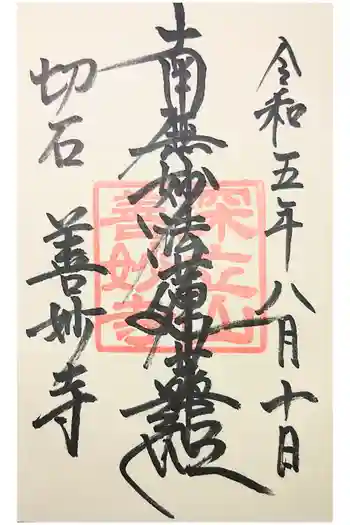 令和五年八月十日
南無妙法蓮華経
切石
善妙寺
深立山
善妙寺